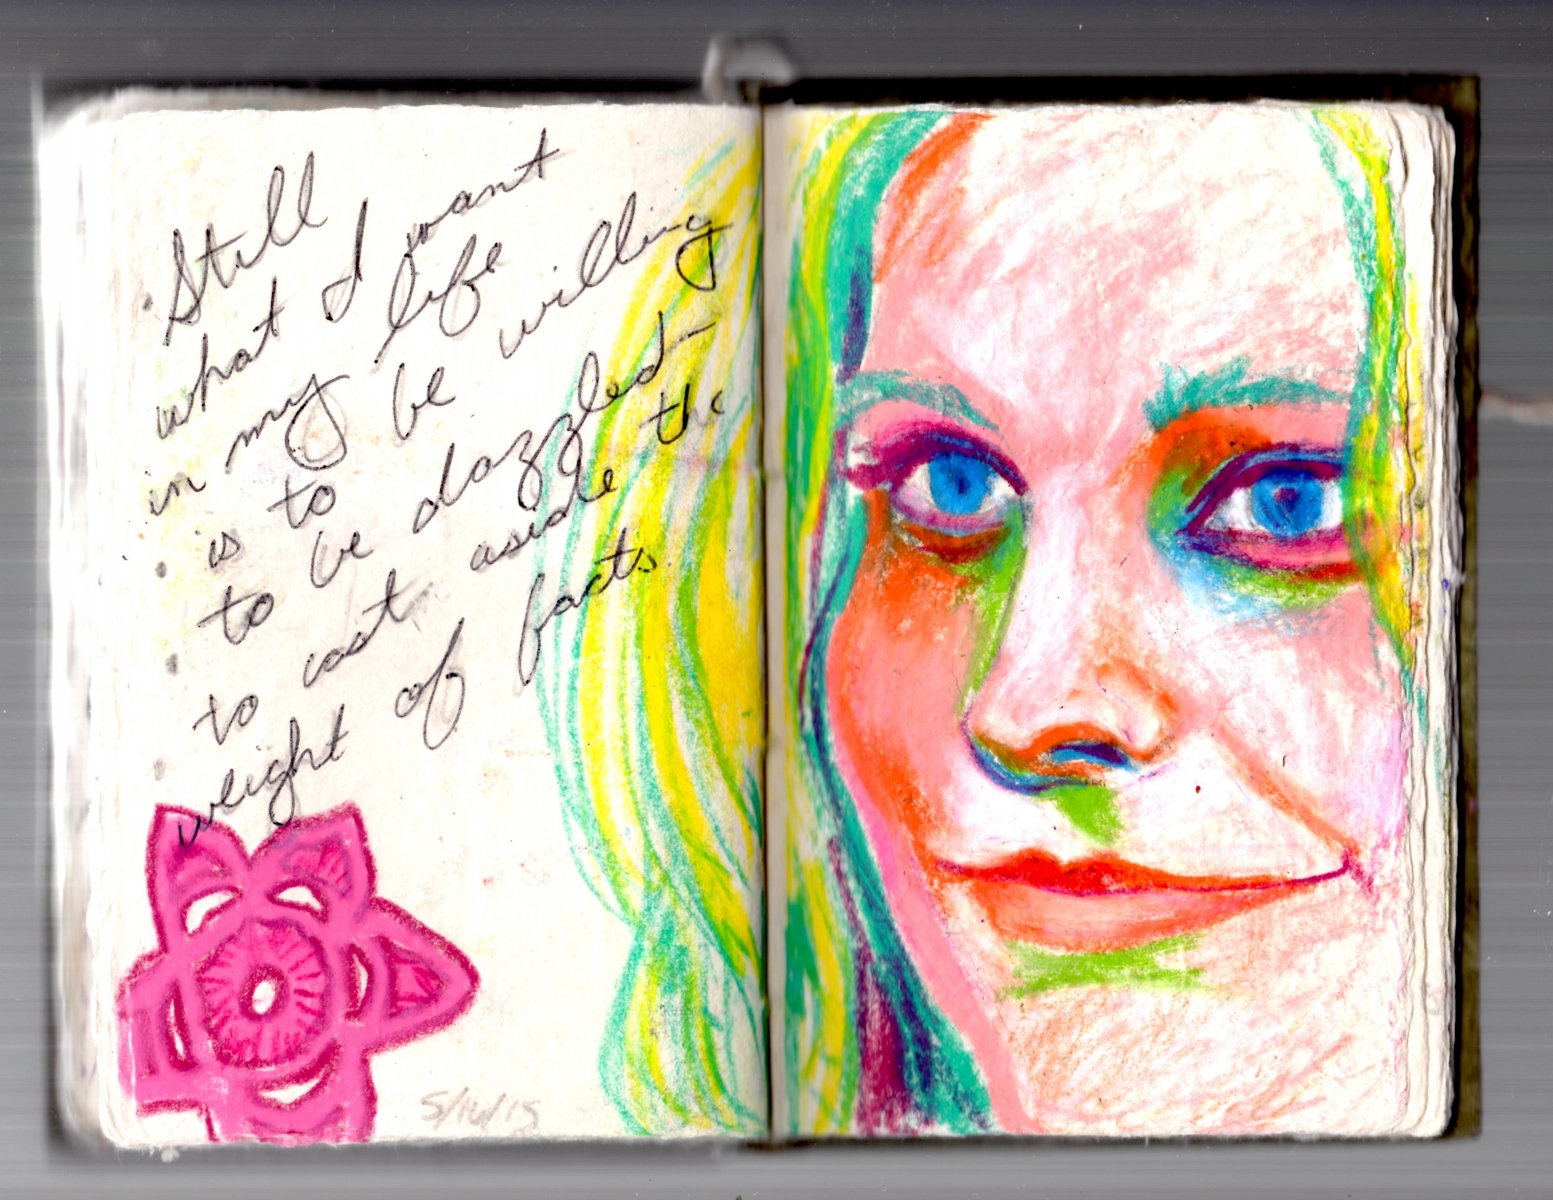 Still
what I want
in my life
is to be willing
to be dazzled—
to cast aside the
weight of facts
5/16/15